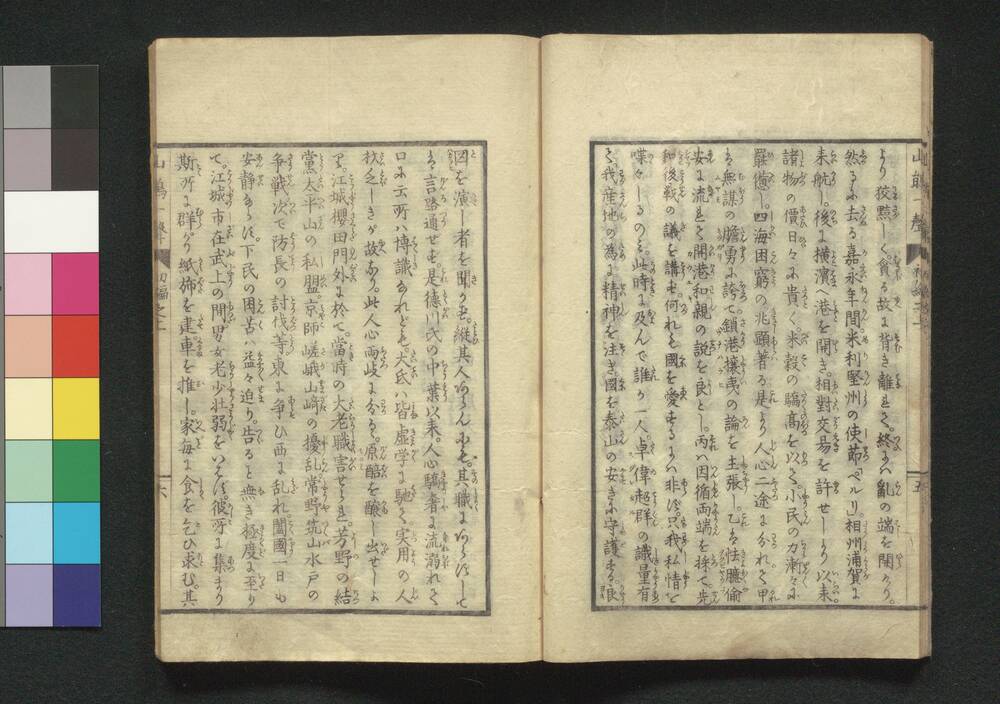 より狡黠しく貪る故に背き離れて終には亂の端を開けり。
然るに去る嘉永年間米利堅州の使節「ペルリ」相州浦賀に
来航し。後に横濱へ港を開き。相對交易を許せしより以来。
諸物の價日々に貴く。米穀の騰髙を以て。小民の力漸々に
羅憊し。四海困窮の兆顕著る是より人心二途にわかれて甲
は無謀の膽勇に誇て。鎖港攘夷の論を主張し。乙は怯臆偷
安に流れて開港和親の説を良とし。丙は因循両端を採て先
和後戦の議を講ず。何れも國を愛するには非ず。只我私情を
喋々しるのミ。此時に及んで誰か一人。卓偉超群の識量有
て。我産地の為に精神を注き國を泰山の安きに守護する良
図を演し者を聞かず。縦其人あらんにも。其職にあらずして
は言路通せず是徳川氏の中葉以来。人心驕奢に流溺れて
口に云所は博識なれども。大氐は皆虚学に馳て実用の人
材乏しきが故なり此人心両岐に分る。原醅を醸し出せしよ
り。江城櫻田門外に於て。當時の大老職害せられ。芳野の結
黨太平山の私盟。京師嵯峨山﨑の擾乱常野筑山水戸の
争戦次で防長の討伐等東に争ひ西に乱れ闔國一日も
安静ならず。下民の困苦は益々迫り。告ると無き極度に至り
て。江城市在武上の間男女老少壮弱をいはず。彼所に集まり
斯所に群がり紙幟を建車を推し。家毎に食を乞ひ求む。其
初編之上
五
六